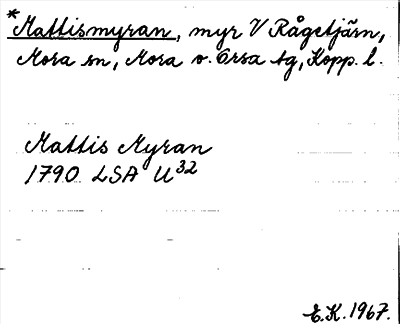 *Mattismyran, myr V Rågetjärn,
Mora sn, Mora o. Orsa tg, Kopp. l.
Mattis Myran
1790 LSA U32
E.K. 1967.